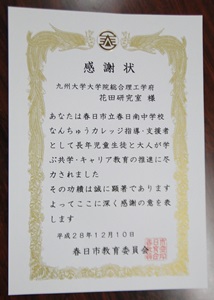 感謝状
九州大学大学院総合理工学府
花田研究室 様
あなたは春日市立春日南中学校
なんちゅうカレッジ指導・支援者
として長年児童生徒と大人が学
ぶ共学・キャリア教育の推進に尽
力されました
その功績は誠に顕著であります
よってここに深く感謝の意を表
します
平成28年12月10日
春日市教育委員会